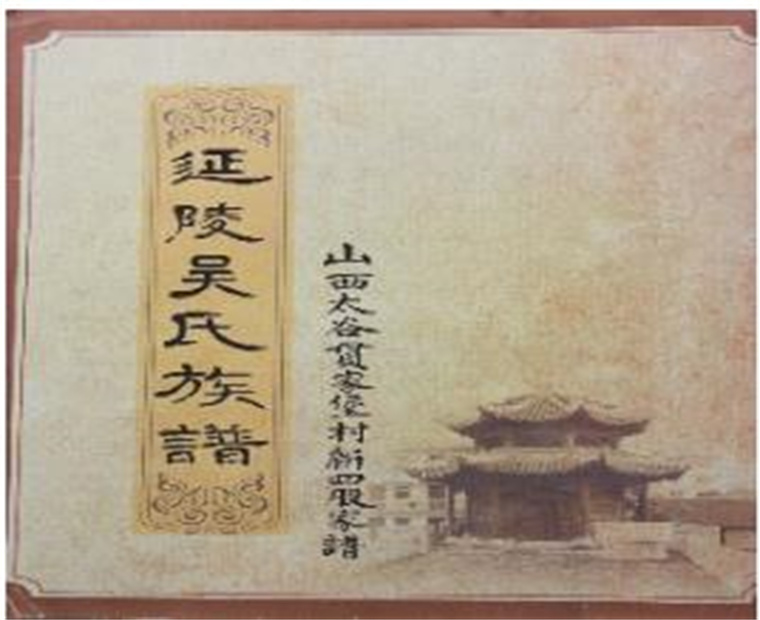 延陵吴氏族譜
山西太谷貫家堡村新四股家譜